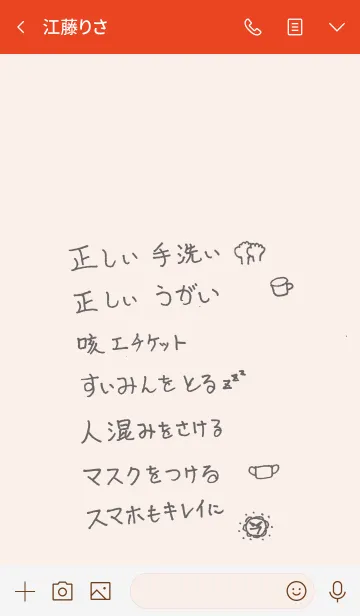 江藤りさ
正しい 手洗い
正しい うがい
咳エチケット
すいみんをとるzzz
人混みをさける
マスクをつける
スマホもキレイに